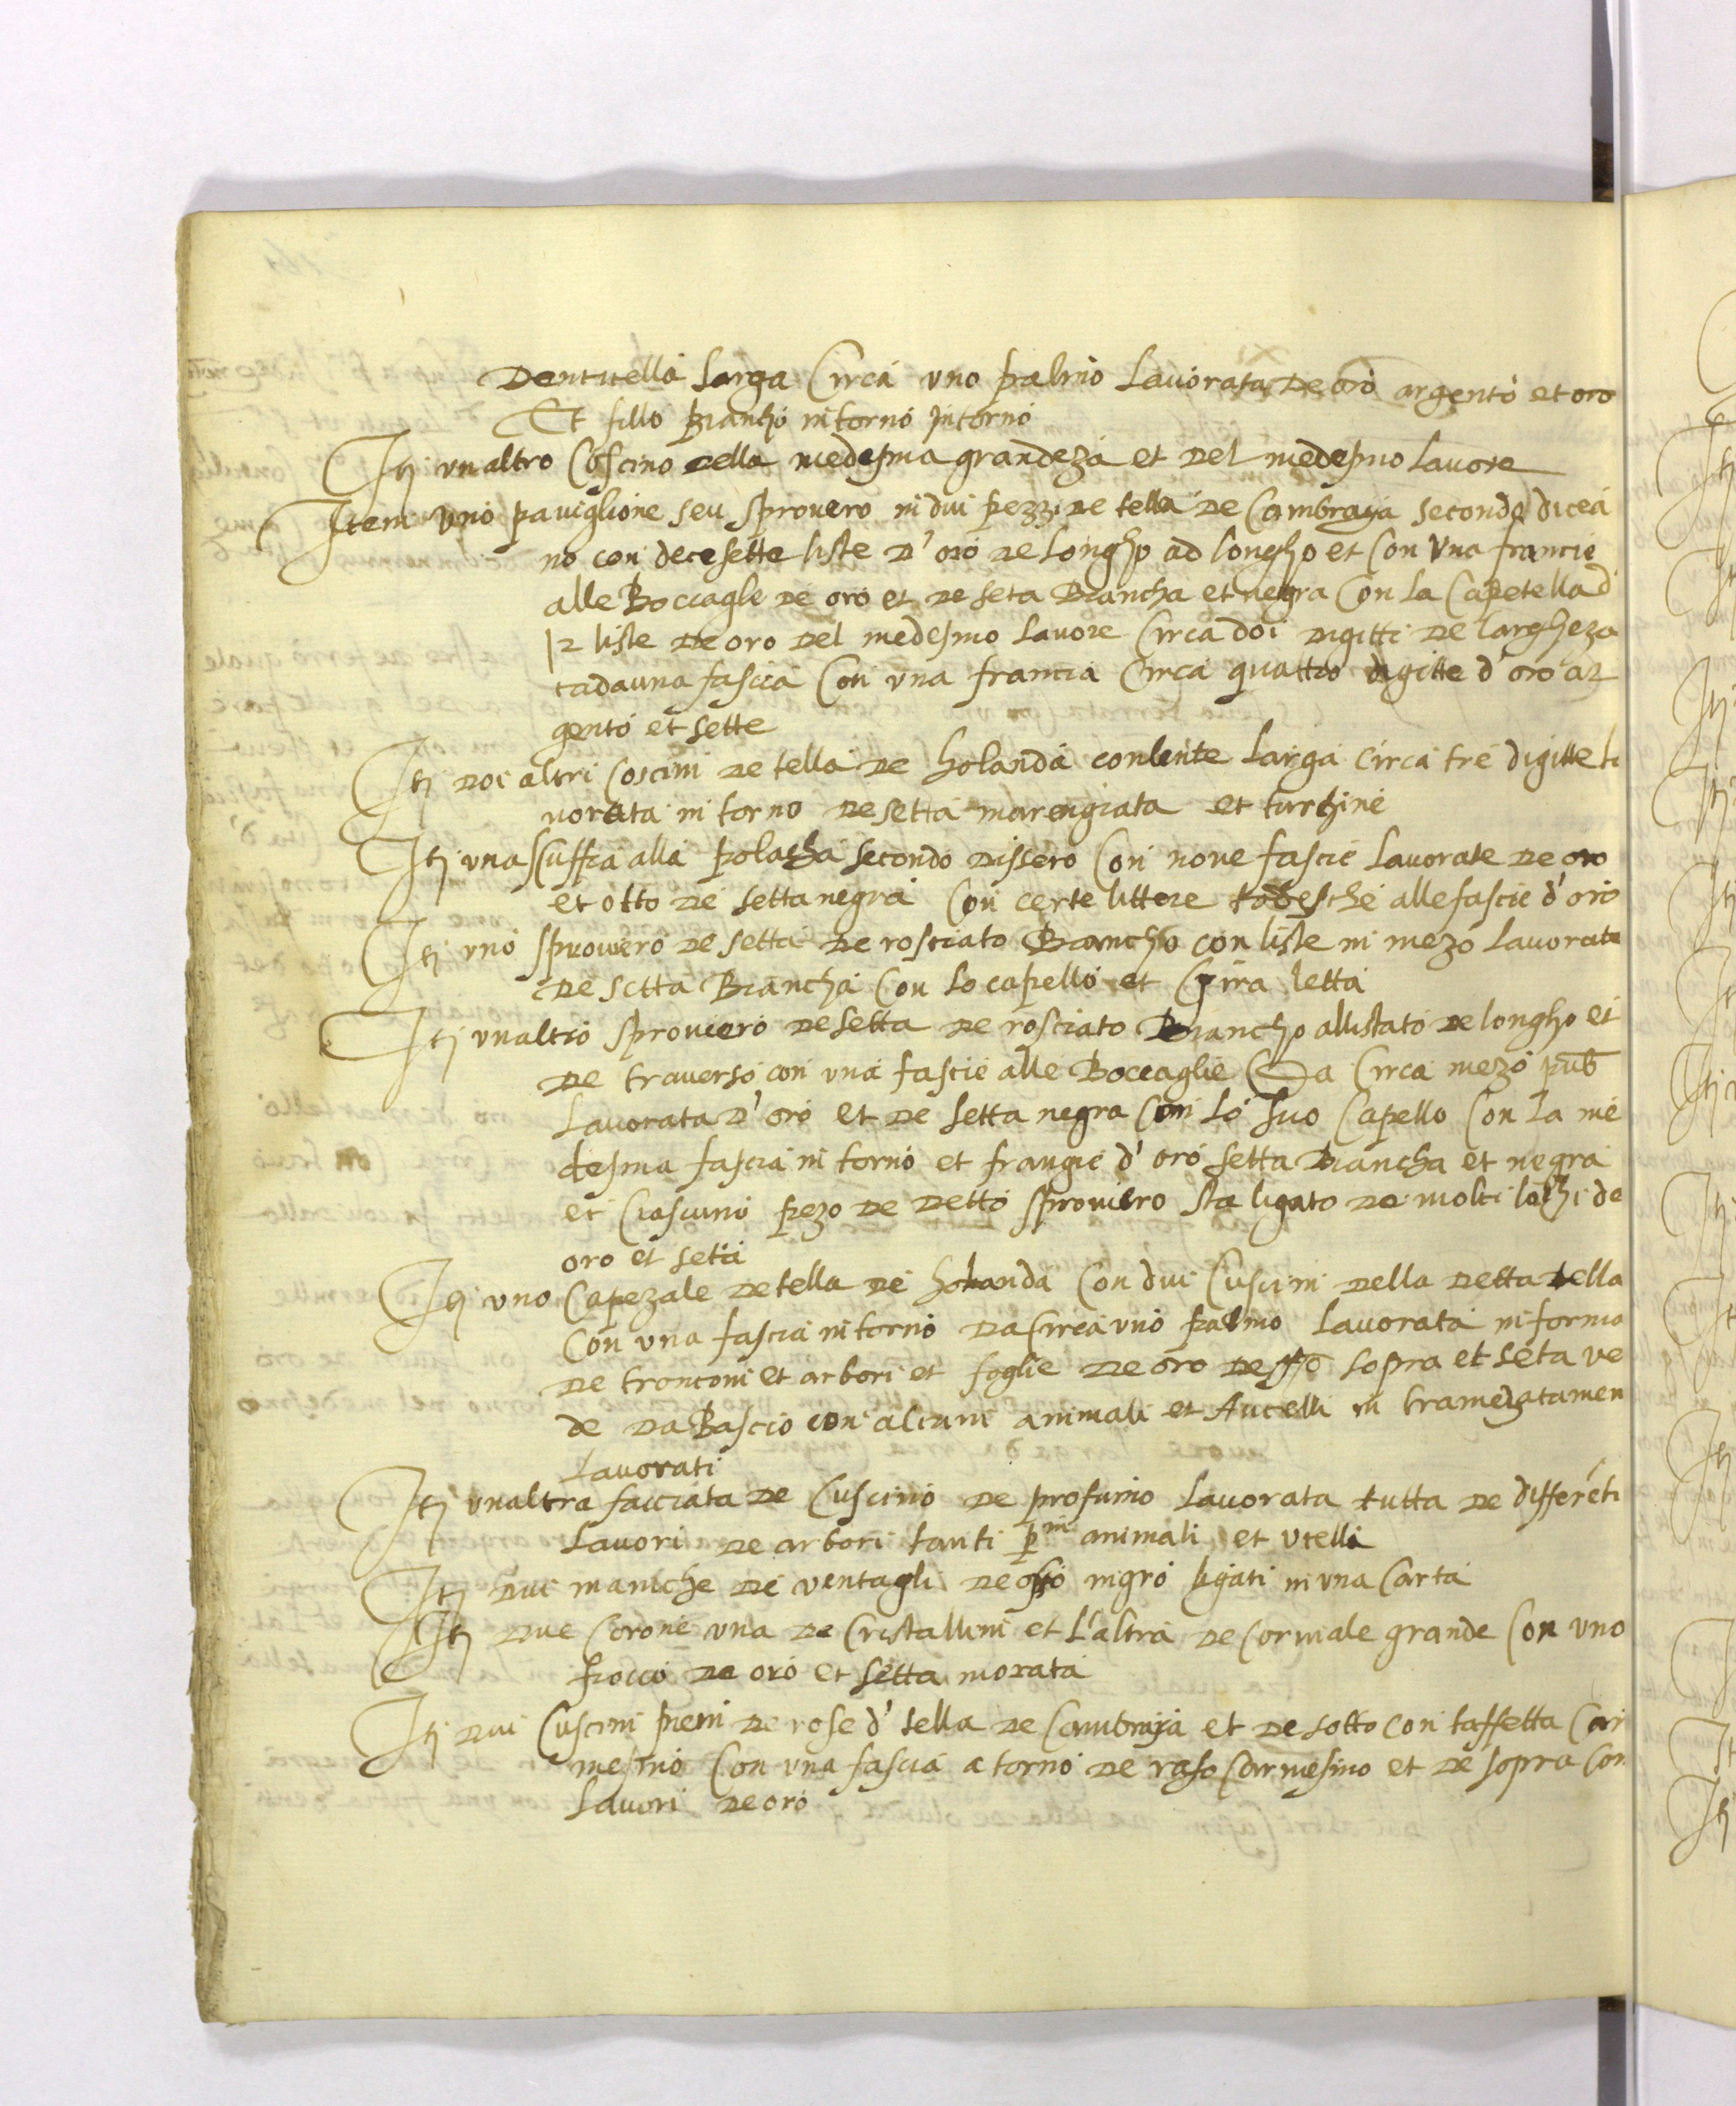 Dentitella larga Circa uno palmo Lavorata de oro argento et oro
Et fillo Biancho intorno intorno
Itj unaltro Coscino della medesma grandeza et del medesmo lavore
Item uno paviglione seu sprovero in dui pezzi de tella de Cambraya secondo dicea
no con decesette liste d'oro de longho ad longho et con una francie
alle Boccagle de oro et de seta Biancha et negra Con la Capetella d
12 liste de oro del medesmo lavore Circa doi digitti de largheza
cadauna fascia Con una francia Circa quattro digitte d'oro ar
gento et sette
Itj doi altri Coscini de tella de holanda conlente larga circa tre digitte la
vorata in torno de setta marengiata et turchine
Itj una scuffia alla polacha secondo dissero Con nove fascie lavorate de oro
et otto de setta negra Con certe littere todesche alle fascie d'oro
Itj uno sprovero de setta de rosciato Biancho con liste in mezo lavorate
de setta Biancha Con lo capello et Gira letta
Itj unaltro sproviero de setta de rosciato Biancho allistato de longho et
de traverso con una fascie alle Boccaglie Da Circa mezo
Lavorata d'oro et de setta negra Con lo suo Capello Con la me
desma fascia in torno et frangie d'oro setta Biancha et negra
et Ciascuno pezo de detto sproviero sta ligato de molti lachi de
oro et seta
Itj uno Capezale de tella de holanda Con dui Cuscini della detta tella
Con una fascia intorno da Circa uno palmo lavorata in forma
de tronconi et arbori et foglie de oro sopra et seta ve
de da Bascio con alcuni animali et Aucelli in tramezatamen
Lavorati
Itj unaltra facciata de Cuscino de profumo lavorata tutta de differeti
Lavori de arbori tanti animali et Ucelli
Itj dui maniche de ventagli de osso nigro ligati in una Carta
Itj due Corone una de Cristallini et l'altra de Corniale grande Con uno
fiocco de oro et setta morata
Itj dui Cuscini pieni de rose d'tella de Cambraya et de sotto con taffetta Car
mesino Con una fascia a torno de raso Carmesino et de sopra Con
Lavori de oro